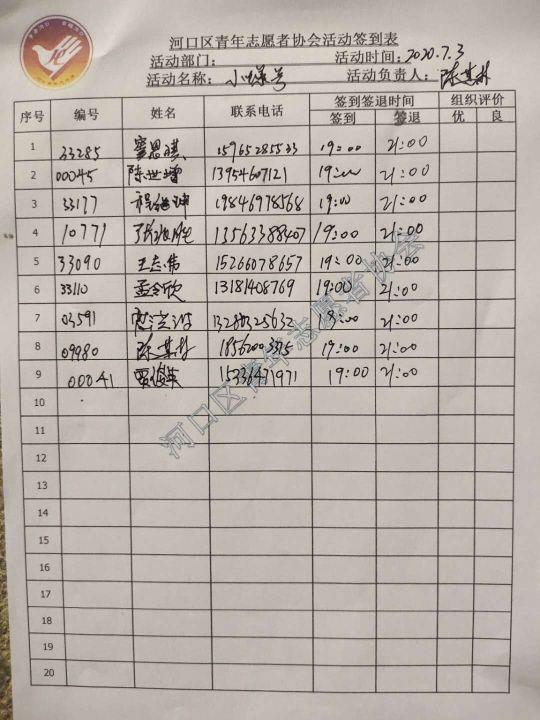 河口区青年志愿者协会活动签到表
活动部门： 活动时间：2020.7.3
活动名称： 小 号 活动负责人：陈其
序号 编号 姓名 联系电话 签到签退时间 组织评价
签到 签退 优 良
1 33285 15965285533 19:00 21:00
2 00045 陈世 13954607121 19:00 21:00
3 33177 程 坤 19846978568 19:00 21:00
4 10771 张 13563388407 19:00 21:00
5 33090 王志伟 15266078657 19:00 21:00
6 33110 孟令欣 13181408769 19:00 21:00
7 03591 19:00 21:00
8 09980 陈其 19:00 21:00
9 00041 贾 英 15336471971 19:00 21:00
10
11
12
13
14
15
16
17
18
19
20
河口区青年志愿者协会